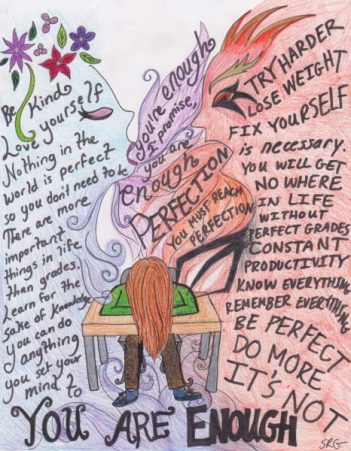 Be Kind
Love yourself
Nothing in the
world is perfect
so you don't need to be
There are more
important
things in life
than grades.
Learn for the
sake of Knowledge
you can do
anything
you set your
mind to
you're enough
I promise
you are
enough
PERFECTION
YOU MUST REACH
PERFECTION
TRY HARDER
LOSE WEIGHT
FIX YOURSELF
is necessary.
YOU WILL GET
NO WHERE
IN LIFE
WITHOUT
PERFECT GRADES
CONSTANT
PRODUCTIVITY
KNOW EVERYTHING
REMEMBER EVERYTHING
BE PERFECT
DO MORE
IT'S NOT
YOU ARE ENOUGH
SRG